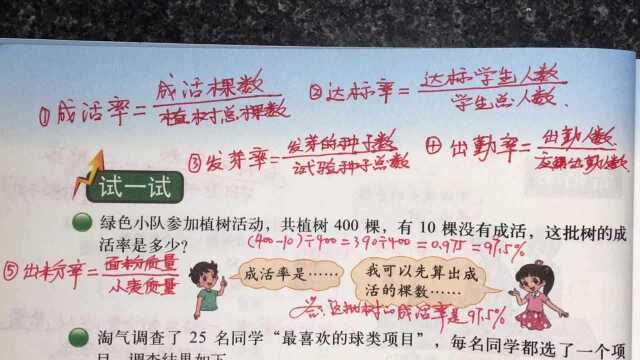 ①成活率=成活棵数/植树总棵数 ②达标率=达标学生人数/学生总人数.
③发芽率=发芽的种子数/试验种子总数 ④出勤率=出勤人数/应出勤人数.
试一试
绿色小队参加植树活动,共植树 400 棵,有 10 棵没有成活,这批树的成
活率是多少? (400-10)÷400=390÷400=0.975=97.5%
⑤出粉率=面粉质量/小麦质量
成活率是…… 我可以先算出成
活的棵数……
答:这批树的成活率是97.5%
淘气调查了 25 名同学“最喜欢的球类项目”,每名同学都选了一个项
目,调查结果如下